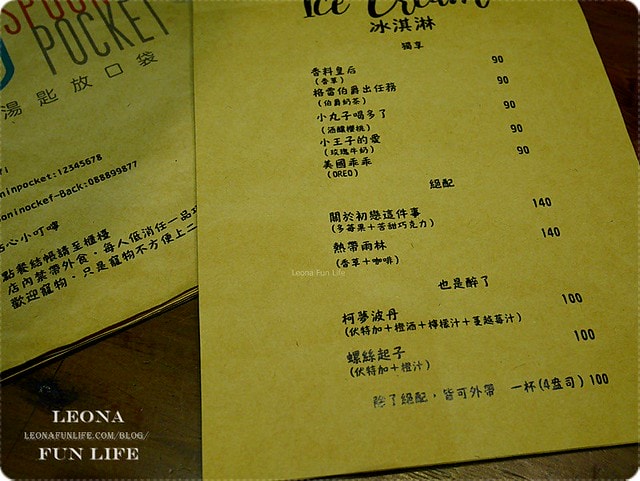 SPOON
POCKET
湯匙放口袋
ninpocket:12345678
088899877
點心小叮嚀
點餐結帳請至櫃檯
店內禁帶外食，每人低消任一品
歡迎寵物，只是寵物不方便上二
Ice Cream
冰淇淋
獨享
香料皇后 90
(香草)
格雷伯爵出任務 90
(伯爵奶茶)
小丸子喝多了 90
(酒釀櫻桃)
小王子的愛 90
(玫瑰牛奶)
美國乖乖 90
(OREO)
絕配
關於初戀這件事 140
(多莓果+苦甜巧克力)
熱帶雨林 140
(香草+咖啡)
Leona Fun Life
也是醉了
柯夢波丹 100
(伏特加+橙酒+檸檬汁+蔓越莓汁)
螺絲起子 100
(伏特加+橙汁)
除了絕配，皆可外帶 一杯(4盎司) 100
LEONA
LEONAFUNLIFE.COM/BLOG/
FUN LIFE